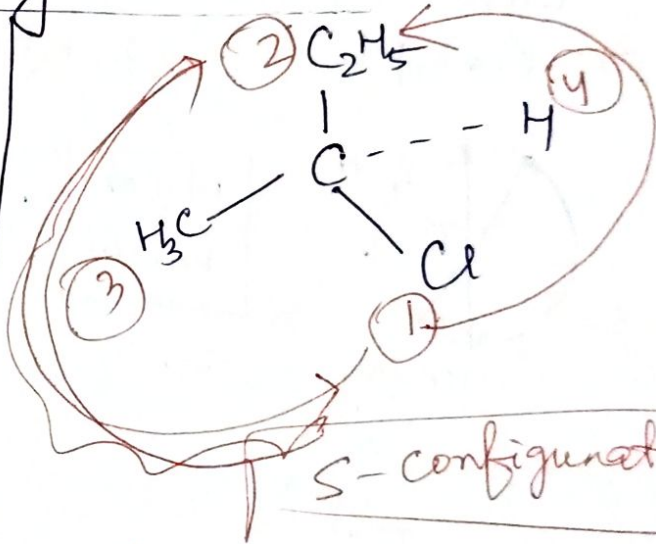 ② C₂H₅
④
C - - - H
H₃C
Cl
③
①
S-configurat